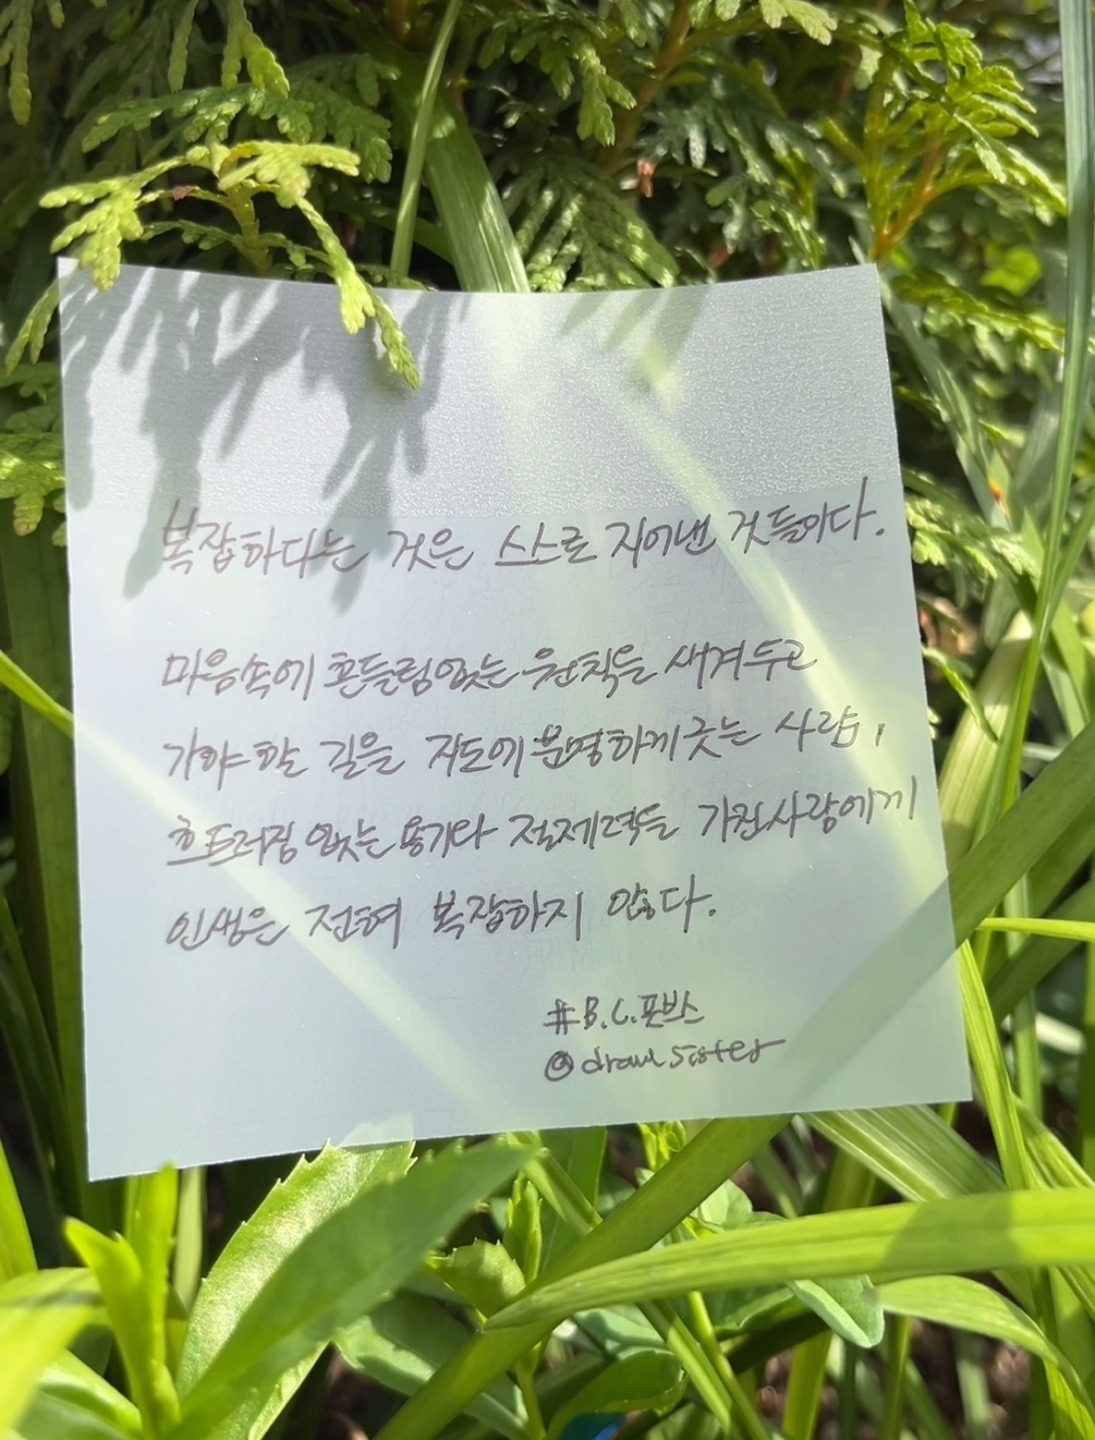 복잡하다는 것은 스스로 지어낸 것들이다.
마음속에 흔들림없는 원칙을 새겨두고
가야 할 길을 지도에 분명하게 긋는 사람,
흐트러짐 없는 용기와 절제력을 가진사람에게
인생은 전혀 복잡하지 않다.
#B.C.포브스
@drawsister